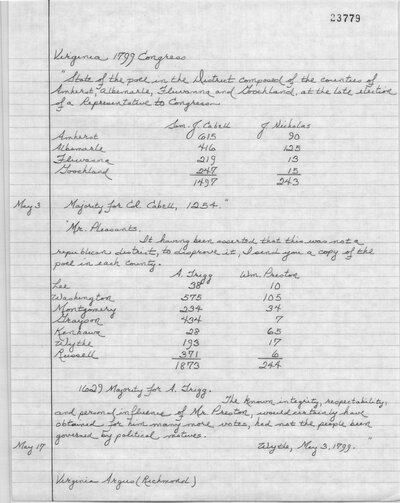 23779
Virginia 1799 Congress
"State of the poll in the District composed of the counties of
Amherst, Albemarle, Fluvanna and Goochland, at the late election
of a Representative to Congress.
Sam. J. Cabell J. Nicholas
Amherst 615 90
Albemarle 416 125
Fluvanna 219 13
Goochland 247 15
1497 243
May 3 Majority for Col. Cabell, 1254."
"Mr. Pleasants,
It having been asserted that this was not a
republican district, to disprove it, I send you a copy of the
poll in each county.
A. Trigg Wm. Preston
Lee 38 10
Washington 575 105
Montgomery 234 34
Grayson 434 7
Kenhawa 28 65
Wythe 193 17
Russell 371 6
1873 244
1629 Majority for A. Trigg.
The known integrity, respectability,
and personal influence of Mr. Preston, would certainly have
obtained for him many more votes, had not the people been
governed by political motives.
May 17 Wythe, May 3, 1799."
Virginia Argus (Richmond)